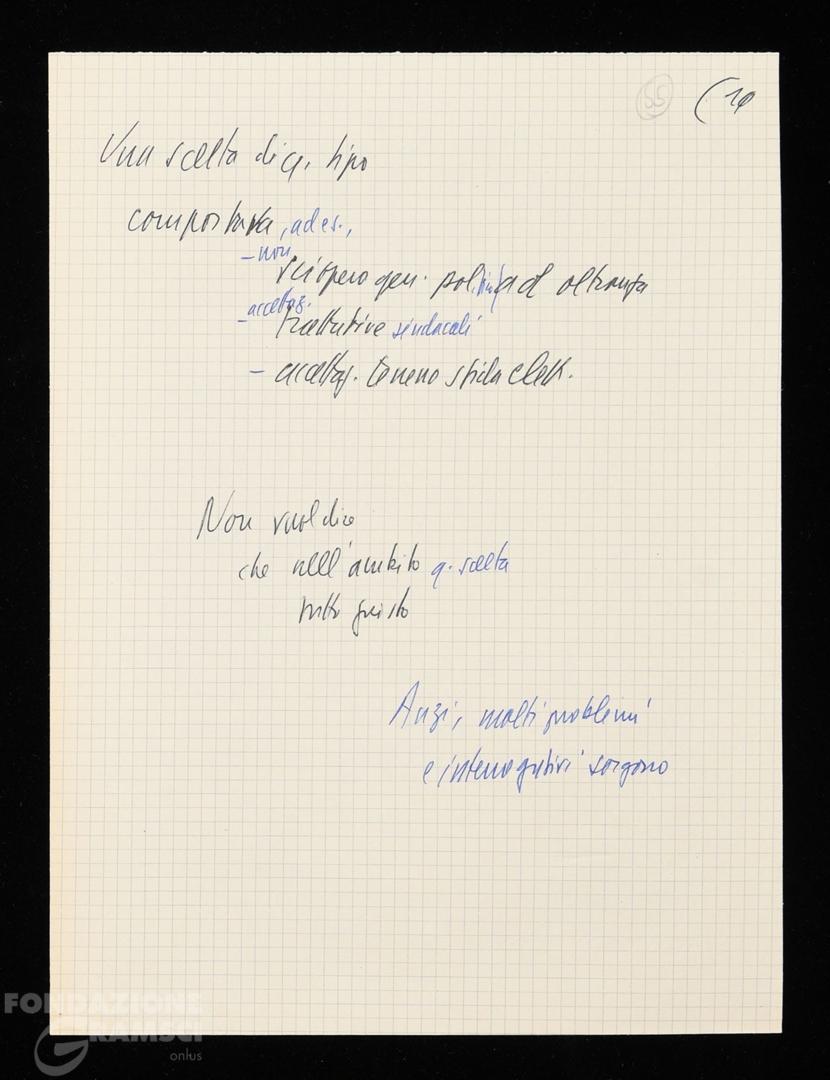 55 (10
Una scelta di q. tipo
comportava, ad es.,
- non
sciopero gen. politico ad oltranza
- accettaz.
trattative sindacali
- accettaz. terreno sfida elett.
Non vuol dire
che nell'ambito q. scelta
tutto giusto
Anzi, molti problemi
e interrogativi sorgono
FONDAZIONE
GRAMSCI
onlus